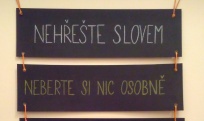 NEHŘEŠTE SLOVEM
NEBERTE SI NIC OSOBNĚ